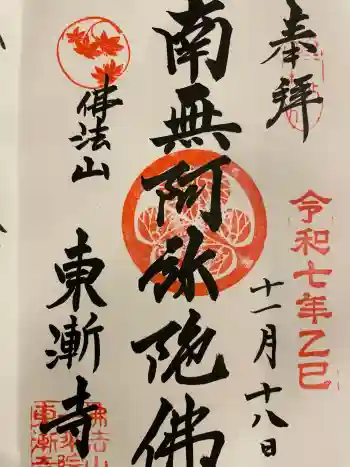 奉拝
令和七年乙巳
十一月十八日
南無阿弥陀佛
佛法山
東漸寺
佛法山
東漸寺